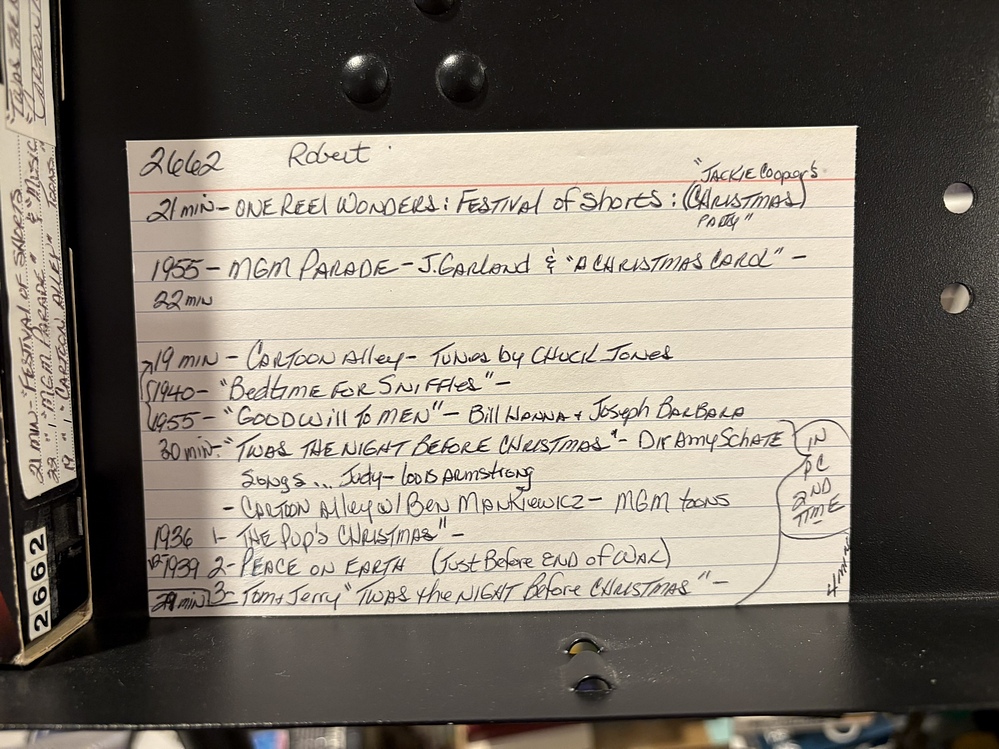 2662 Robert
"JACKIE Cooper's
21 min - ONE REEL WONDERS: FESTIVAL of Shorts: (CHRISTMAS)
PARTY"
1955 - MGM PARADE - J. GARLAND & "A CHRISTMAS CAROL" -
22 min
19 min - CARTOON Alley - TUNES by CHUCK JONES
1940 - "Bedtime FOR SNIFFLES" -
1955 - "GOODWILL TO MEN" - Bill HANNA + Joseph BARBARA
30 min - "TWAS THE NIGHT BEFORE CHRISTMAS" - Dir Amy SCHATE
SONGS... Judy - LOUIS ARMSTRONG
- CARTOON Alley w/ BEN MANKIEWICZ - MGM toons
1936 1 - THE PUP'S CHRISTMAS" -
1939 2 - PEACE ON EARTH (Just Before END of WAR)
29 min 3 - Tom + Jerry "TWAS the NIGHT Before CHRISTMAS" -
IN
PC
2ND
TIME
21 min - "FESTIVAL OF SHORTS
22 " " "MGM PARADE" & "MUSIC
19 " " CARTOON ALLEY" TOONS"
2662